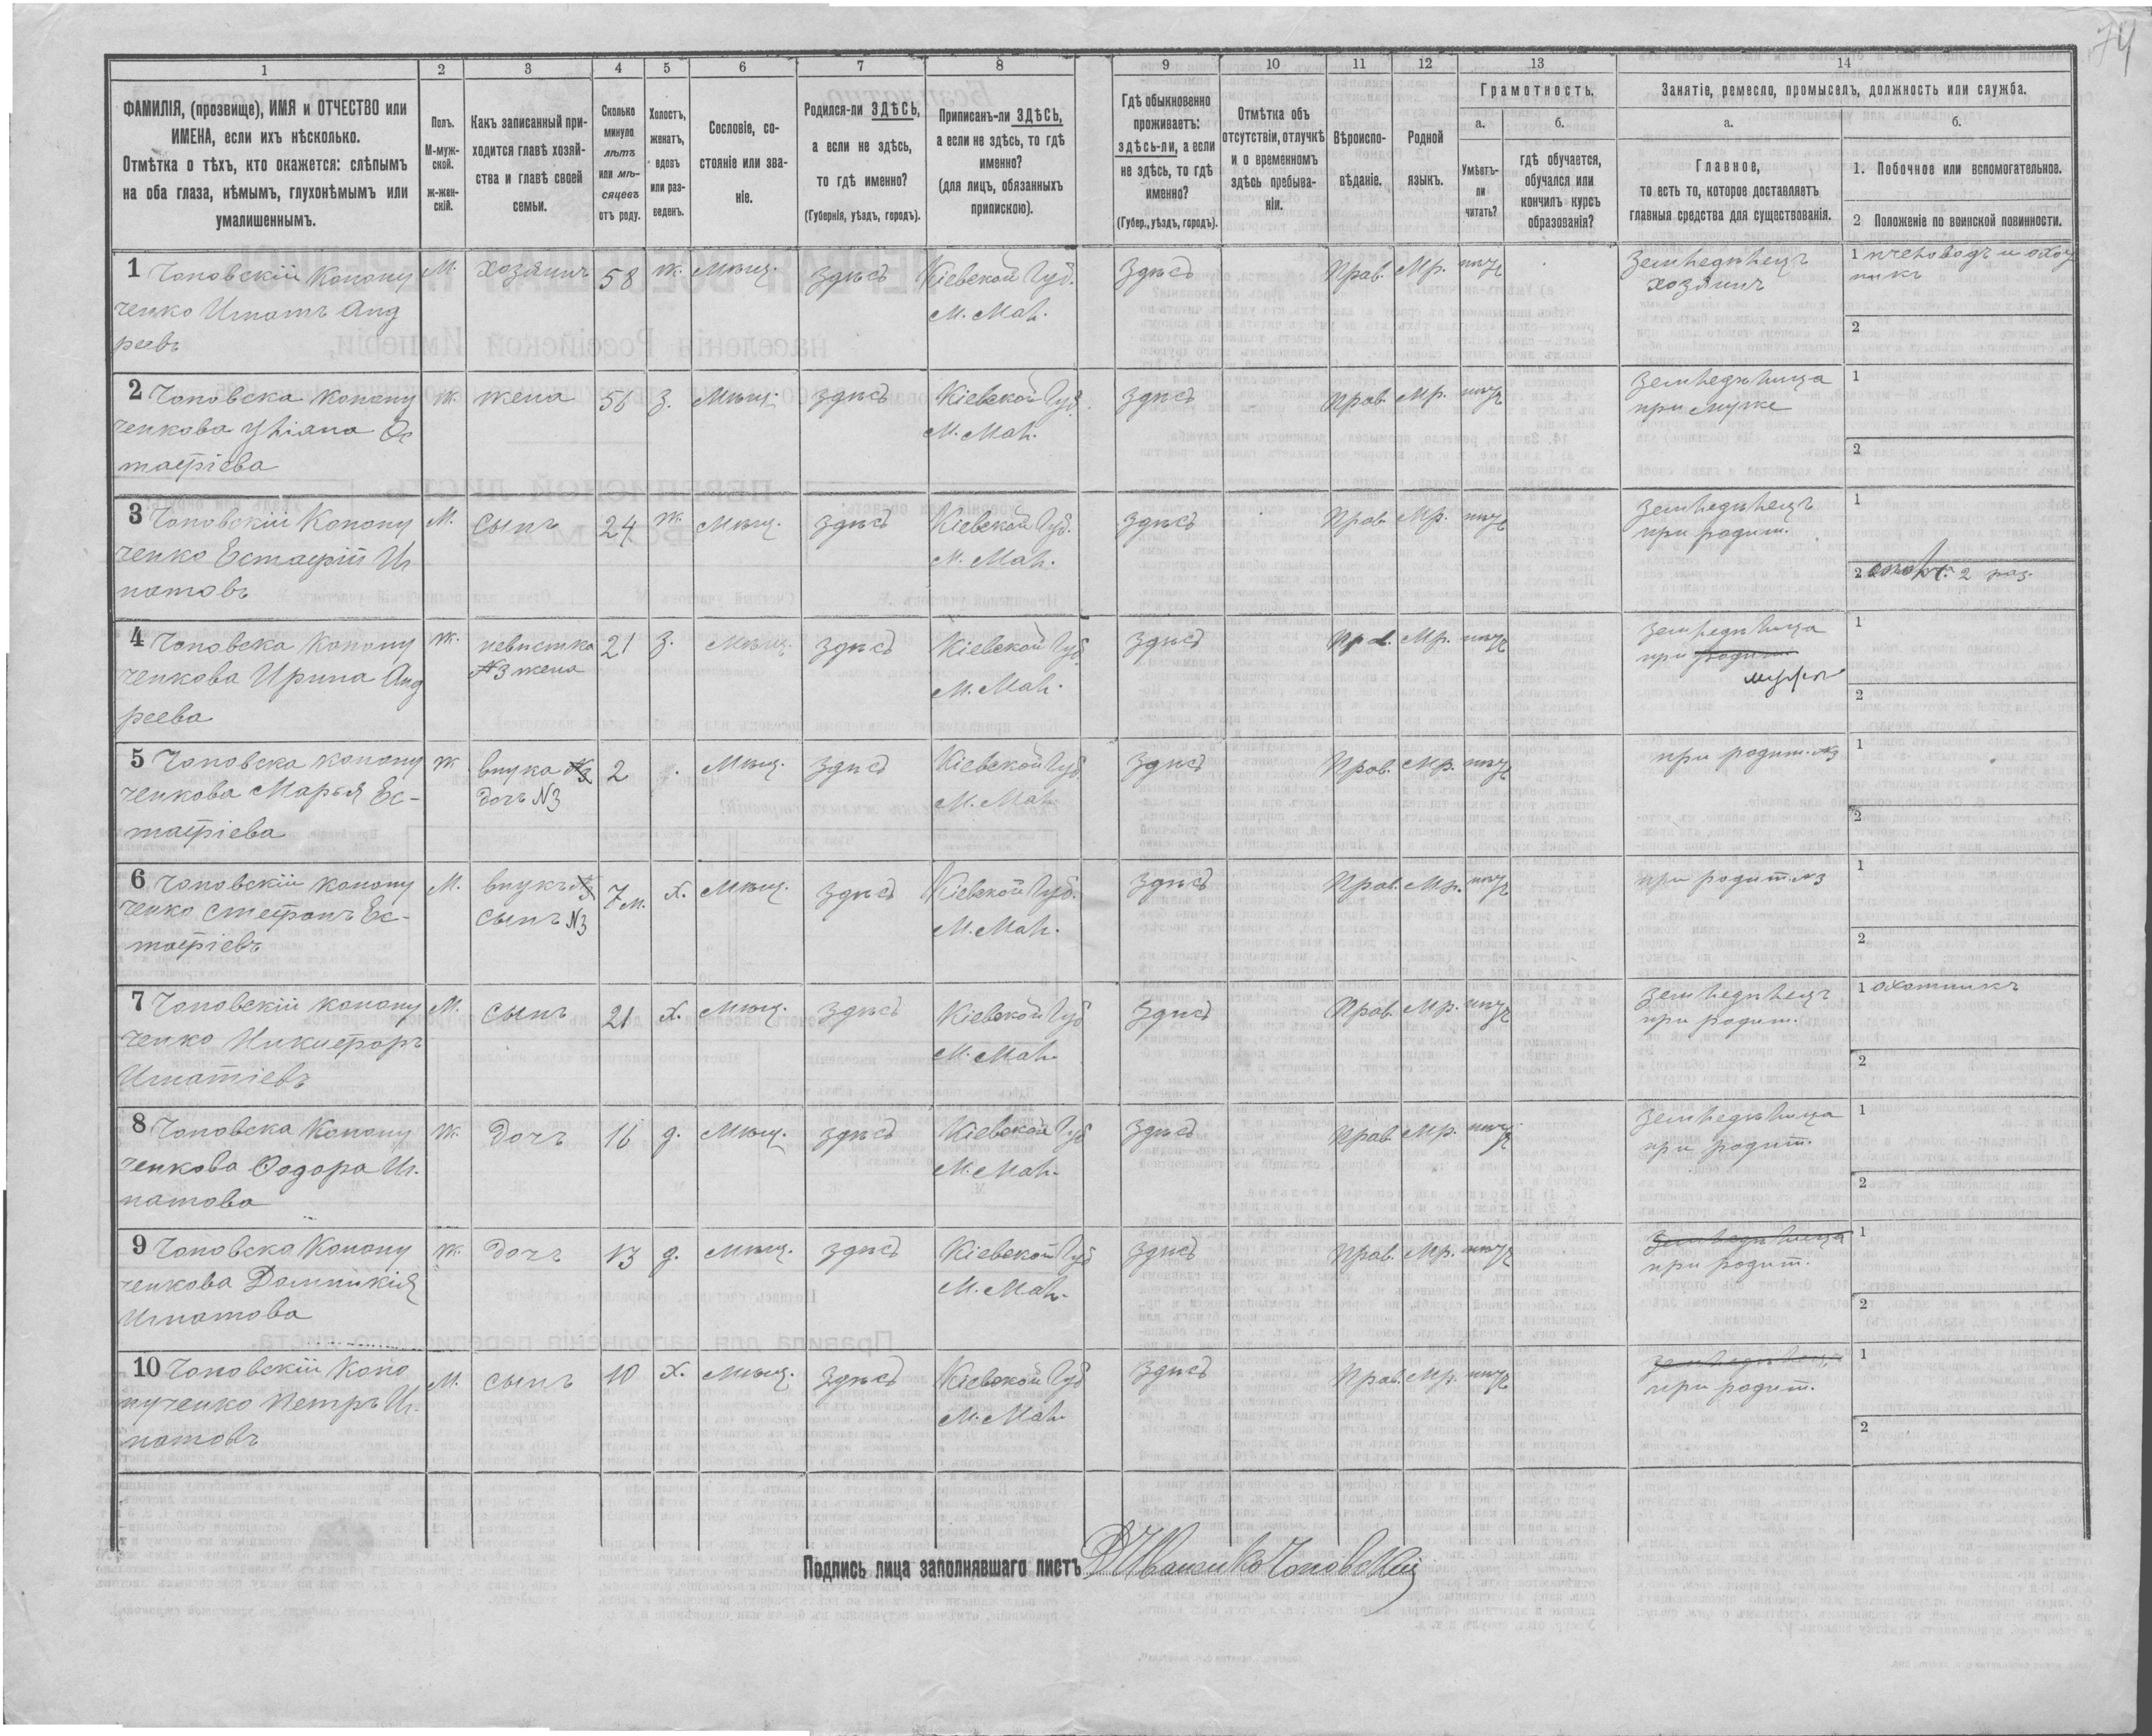 74
1 2 3 4 5 6 7 8 9 10 11 12 13 14
ФАМИЛІЯ, (прозвище), ИМЯ и ОТЧЕСТВО или
ИМЕНА, если ихъ нѣсколько.
Отмѣтка о тѣхъ, кто окажется: слѣпымъ
на оба глаза, нѣмымъ, глухонѣмымъ или
умалишеннымъ.
Полъ.
М-муж-
ской.
ж-жен-
скій.
Какъ записанный при-
ходится главѣ хозяй-
ства и главѣ своей
семьи.
Сколько
минуло
лѣтъ
или мѣ-
сяцевъ
отъ роду.
Холостъ,
женатъ,
вдовъ
или раз-
веденъ.
Сословіе, со-
стояніе или зва-
ніе.
Родился-ли ЗДѢСЬ,
а если не здѣсь,
то гдѣ именно?
(Губернія, уѣздъ, городъ).
Приписанъ-ли ЗДѢСЬ,
а если не здѣсь, то гдѣ
именно?
(для лицъ, обязанныхъ
припискою).
Гдѣ обыкновенно
проживаетъ:
здѣсь-ли, а если
не здѣсь, то гдѣ
именно?
(Губер., уѣздъ, городъ).
Отмѣтка объ
отсутствіи, отлучкѣ
и о временномъ
здѣсь пребыва-
ніи.
Вѣроиспо-
вѣданіе.
Родной
языкъ.
Грамотность.
а.
Умѣетъ-
ли
читать?
б.
гдѣ обучается,
обучался или
кончилъ курсъ
образованія?
Занятіе, ремесло, промыселъ, должность или служба.
а.
Главное,
то есть то, которое доставляетъ
главныя средства для существованія.
б.
1. Побочное или вспомогательное.
2 Положеніе по воинской повинности.
1 Чоповскій Конону
ченко Игнатъ Анд
реевъ
М. хозяинъ 58 ж. Мѣщ. здѣсь
Кіевской Губ.
М. Мал.
здѣсь Прав. Мр. нѣтъ
Земледѣлецъ
хозяинъ
1 пчеловодъ и охот
никъ
2
2 Чоповска Конону
ченкова Уліана Ос
тафіева
ж. жена 56 з. Мѣщ. здѣсь
Кіевской Губ.
М. Мал.
здѣсь Прав. Мр. нѣтъ
земледѣлица
при мужѣ
1
2
3 Чоповскій Конону
ченко Естафій Иг
натовъ
М. сынъ 24 ж. Мѣщ. здѣсь
Кіевской Губ.
М. Мал.
здѣсь Прав. Мр. нѣтъ
земледѣлецъ
при родит.
1
2 2 раз.
4 Чоповска Конону
ченкова Ирина Анд
реева
ж. невистка
№3 жена
21 з. Мѣщ. здѣсь
Кіевской Губ.
М. Мал.
здѣсь Прав. Мр. нѣтъ
земледѣлица
при родит.
мужѣ
1
2
5 Чоповска Конону
ченкова Марья Ес-
тафіева
ж внука №3
дочь №3
2 д. Мѣщ. здѣсь
Кіевской Губ.
М. Мал.
здѣсь Прав. Мр. нѣтъ
при родит. №3
1
2
6 Чоповскій Конону
ченко Стефанъ Ес-
тафіевъ
М. внукъ №3
сынъ №3
7 м. х. Мѣщ. здѣсь
Кіевской Губ.
М. Мал.
здѣсь Прав. Мр. нѣтъ
при родит №3
1
2
7 Чоповскій Конону
ченко Никифоръ
Игнатіевъ
М. сынъ 21 х. Мѣщ. здѣсь
Кіевской Губ
М. Мал.
здѣсь Прав. Мр. нѣтъ
земледѣлецъ
при родит.
1 охотникъ
2
8 Чоповска Конону
ченкова Ѳодора Иг.
натова
ж. дочь 16 д. Мѣщ. здѣсь
Кіевской Губ
М. Мал.
здѣсь Прав. Мр. нѣтъ
земледѣлица
при родит.
1
2
9 Чоповска Конону
ченкова Домникія
Игнатова
ж. дочь 13 д. Мѣщ. здѣсь
Кіевской Губ
М. Мал.
здѣсь Прав. Мр. нѣтъ
земледѣлица
при родит.
1
2
10 Чоповскій Коно
нученко Петръ Иг.
натовъ
М. сынъ 10 х. Мѣщ. здѣсь
Кіевской Губ
М. Мал.
здѣсь Прав. Мр. нѣтъ
земледѣлецъ
при родит.
1
2
Подпись лица заполнявшаго листъ Иваненко Чоповскій